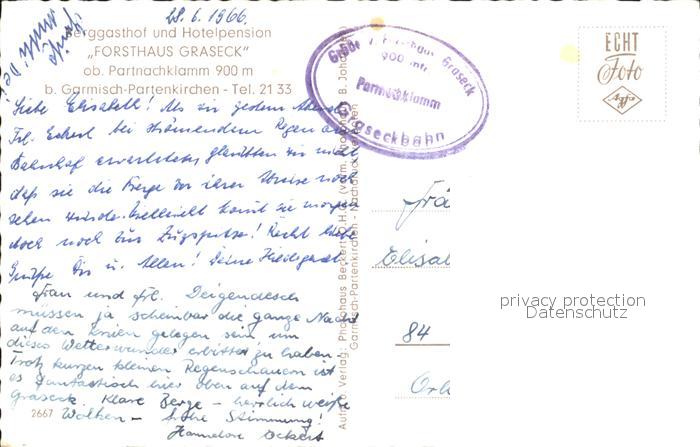 28.6.1966.
Berggasthof und Hotelpension
„FORSTHAUS GRASECK"
ob. Partnachklamm 900 m
b. Garmisch-Partenkirchen - Tel. 21 33
Liebe Elisabeth! Als wir gestern Abend
Frl. Eckert bei strömendem Regen am
Bahnhof erwarteten glaubten wir nicht
daß sie die Berge vor ihrer Abreise noch
sehen würde. Vielleicht kommt sie morgen
doch noch zur Zugspitze! Recht liebe
Grüße Dir u. Allen! Deine Heidegard
Frau und Frl. Deigendesch
müssen ja scheinbar die ganze Nacht
auf den Knien gelegen sein um
dieses Wetterwunder erbittet zu haben.
Trotz kurzen kleinen Regenschauern ist
es fantastisch hier oben auf dem
Graseck. Klare Berge - herrlich weiße
Wolken - frohe Stimmung!
Hannelore Eckert
2667
Aufn. o. Verlag: Photohaus Beckert O.H.G. (vorm.
Garmisch-Partenkirchen - Nachdruck verboten
Forsthaus Graseck
900 mtr
Partnachklamm
Graseckbahn
ECHT
Foto
Agfa
Frä
Elisab
84
privacy protection
Datenschutz